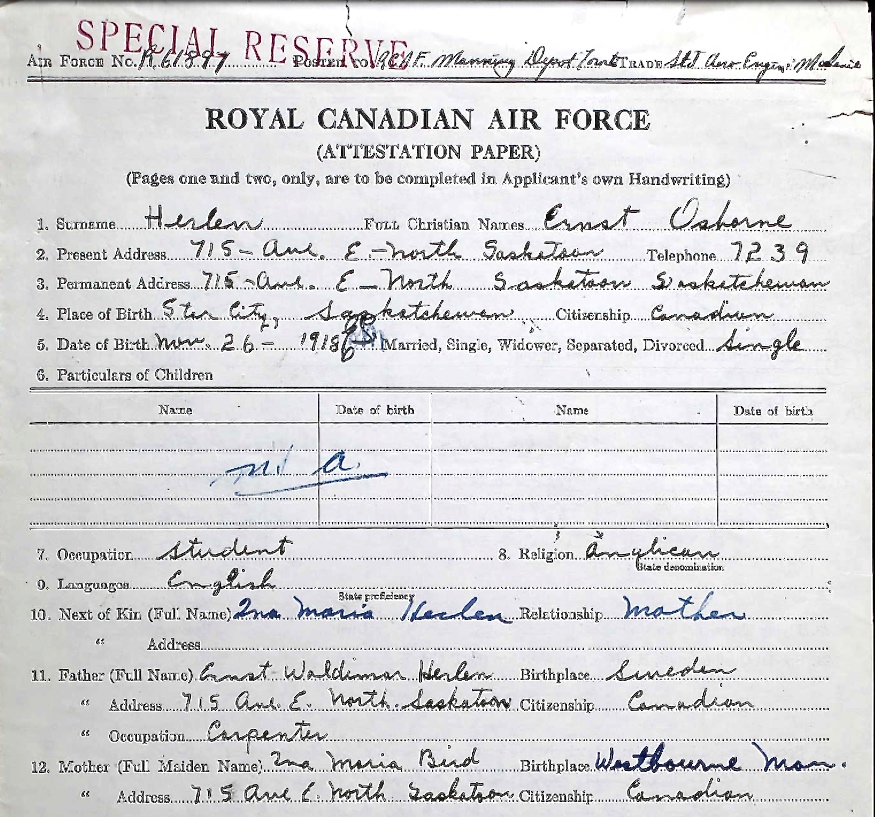 SPECIAL RESERVE
Air Force No. R61897 Posted to R.C.A.F. Manning Depot Trade Std Aero Engine Mechanic
ROYAL CANADIAN AIR FORCE
(ATTESTATION PAPER)
(Pages one and two, only, are to be completed in Applicant's own Handwriting)
1. Surname Herlen Full Christian Names Ernst Osborne
2. Present Address 715-Ave. E.-North Saskatoon Telephone 7239
3. Permanent Address 715-Ave. E-North Saskatoon Saskatchewan
4. Place of Birth Star City, Saskatchewan Citizenship Canadian
5. Date of Birth Nov. 26- Married, Single, Widower, Separated, Divorced Single
6. Particulars of Children
Name Date of birth Name Date of birth
7. Occupation Student 8. Religion Anglican
State denomination
9. Languages English
State proficiency
10. Next of Kin (Full Name) Ina Maria Herlen Relationship Mother
" Address
11. Father (Full Name) Ernst Waldimar Herlen Birthplace Sweden
" Address 715 Ave. E. North. Saskatoon Citizenship Canadian
" Occupation Carpenter
12. Mother (Full Maiden Name) Ina Maria Bird Birthplace Westbourne Man.
" Address 715 Ave E. North Saskatoon Citizenship Canadian